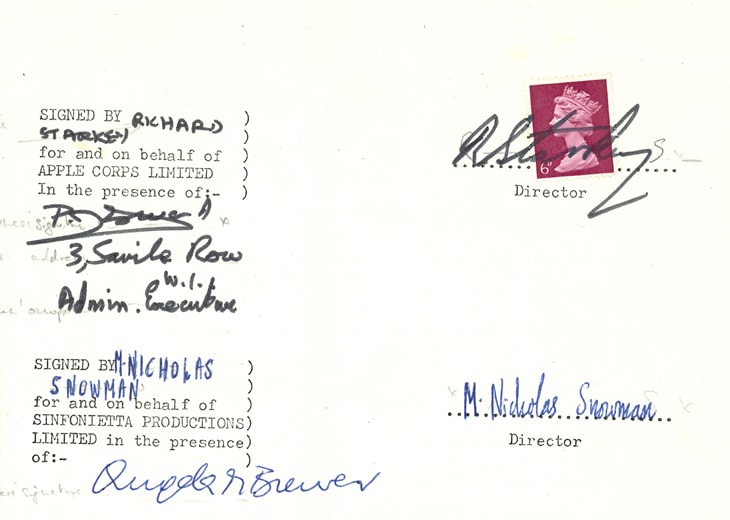 SIGNED BY RICHARD )
STARKEY )
for and on behalf of )
APPLE CORPS LIMITED )
In the presence of:- )
R Starkey
6D
Director
3, Savile Row
W.1.
Admin. Executive
SIGNED BY M. NICHOLAS )
SNOWMAN )
for and on behalf of )
SINFONIETTA PRODUCTIONS)
LIMITED in the presence)
of:- )
M. Nicholas Snowman
Director
Angela M Brewer